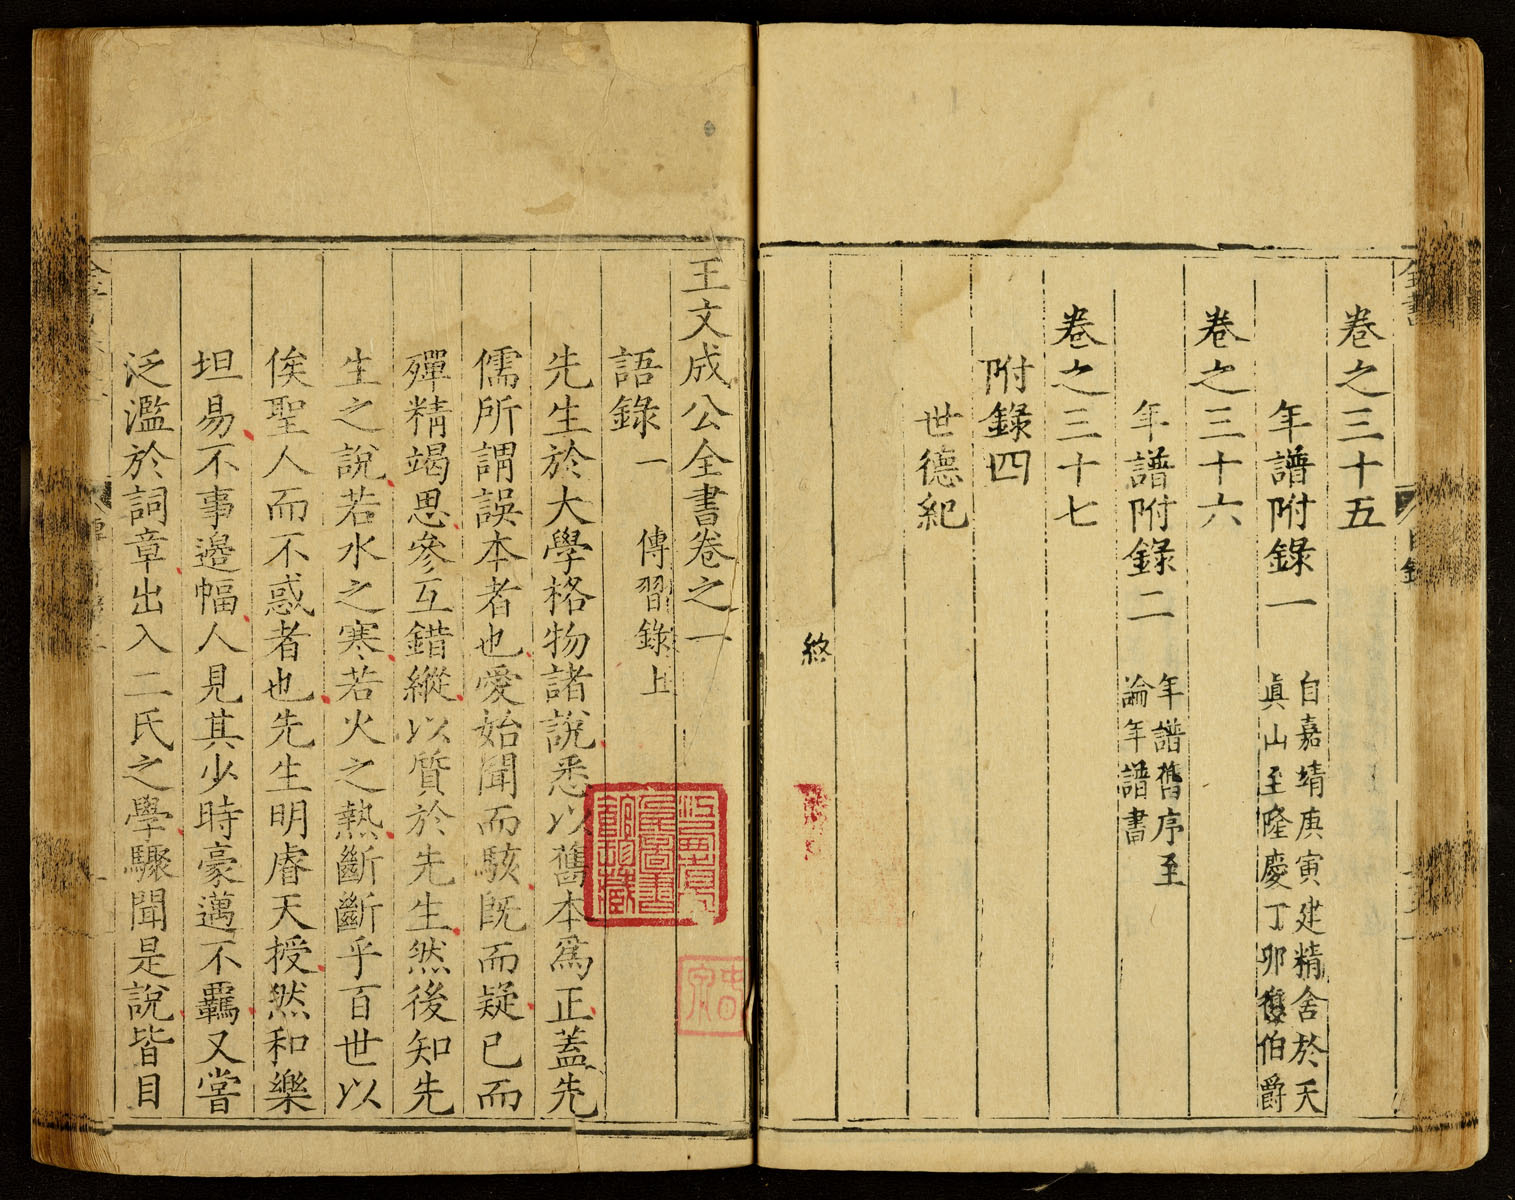 卷之三十五
年譜附錄一 自嘉靖庚寅建精舍於天
眞山至隆慶丁卯復伯爵
卷之三十六
年譜附錄二 年譜舊序至
論年譜書
卷之三十七
附錄四
世德紀
終
王文成公全書卷之一
語錄一 傳習錄上
先生於大學格物諸說悉以舊本爲正蓋先
儒所謂誤本者也愛始聞而駭既而疑已而
殫精竭思參互錯縱以質於先生然後知先
生之說若水之寒若火之熱斷斷乎百世以
俟聖人而不惑者也先生明睿天授然和樂
坦易不事邊幅人見其少時豪邁不羈又嘗
泛濫於詞章出入二氏之學驟聞是說皆目